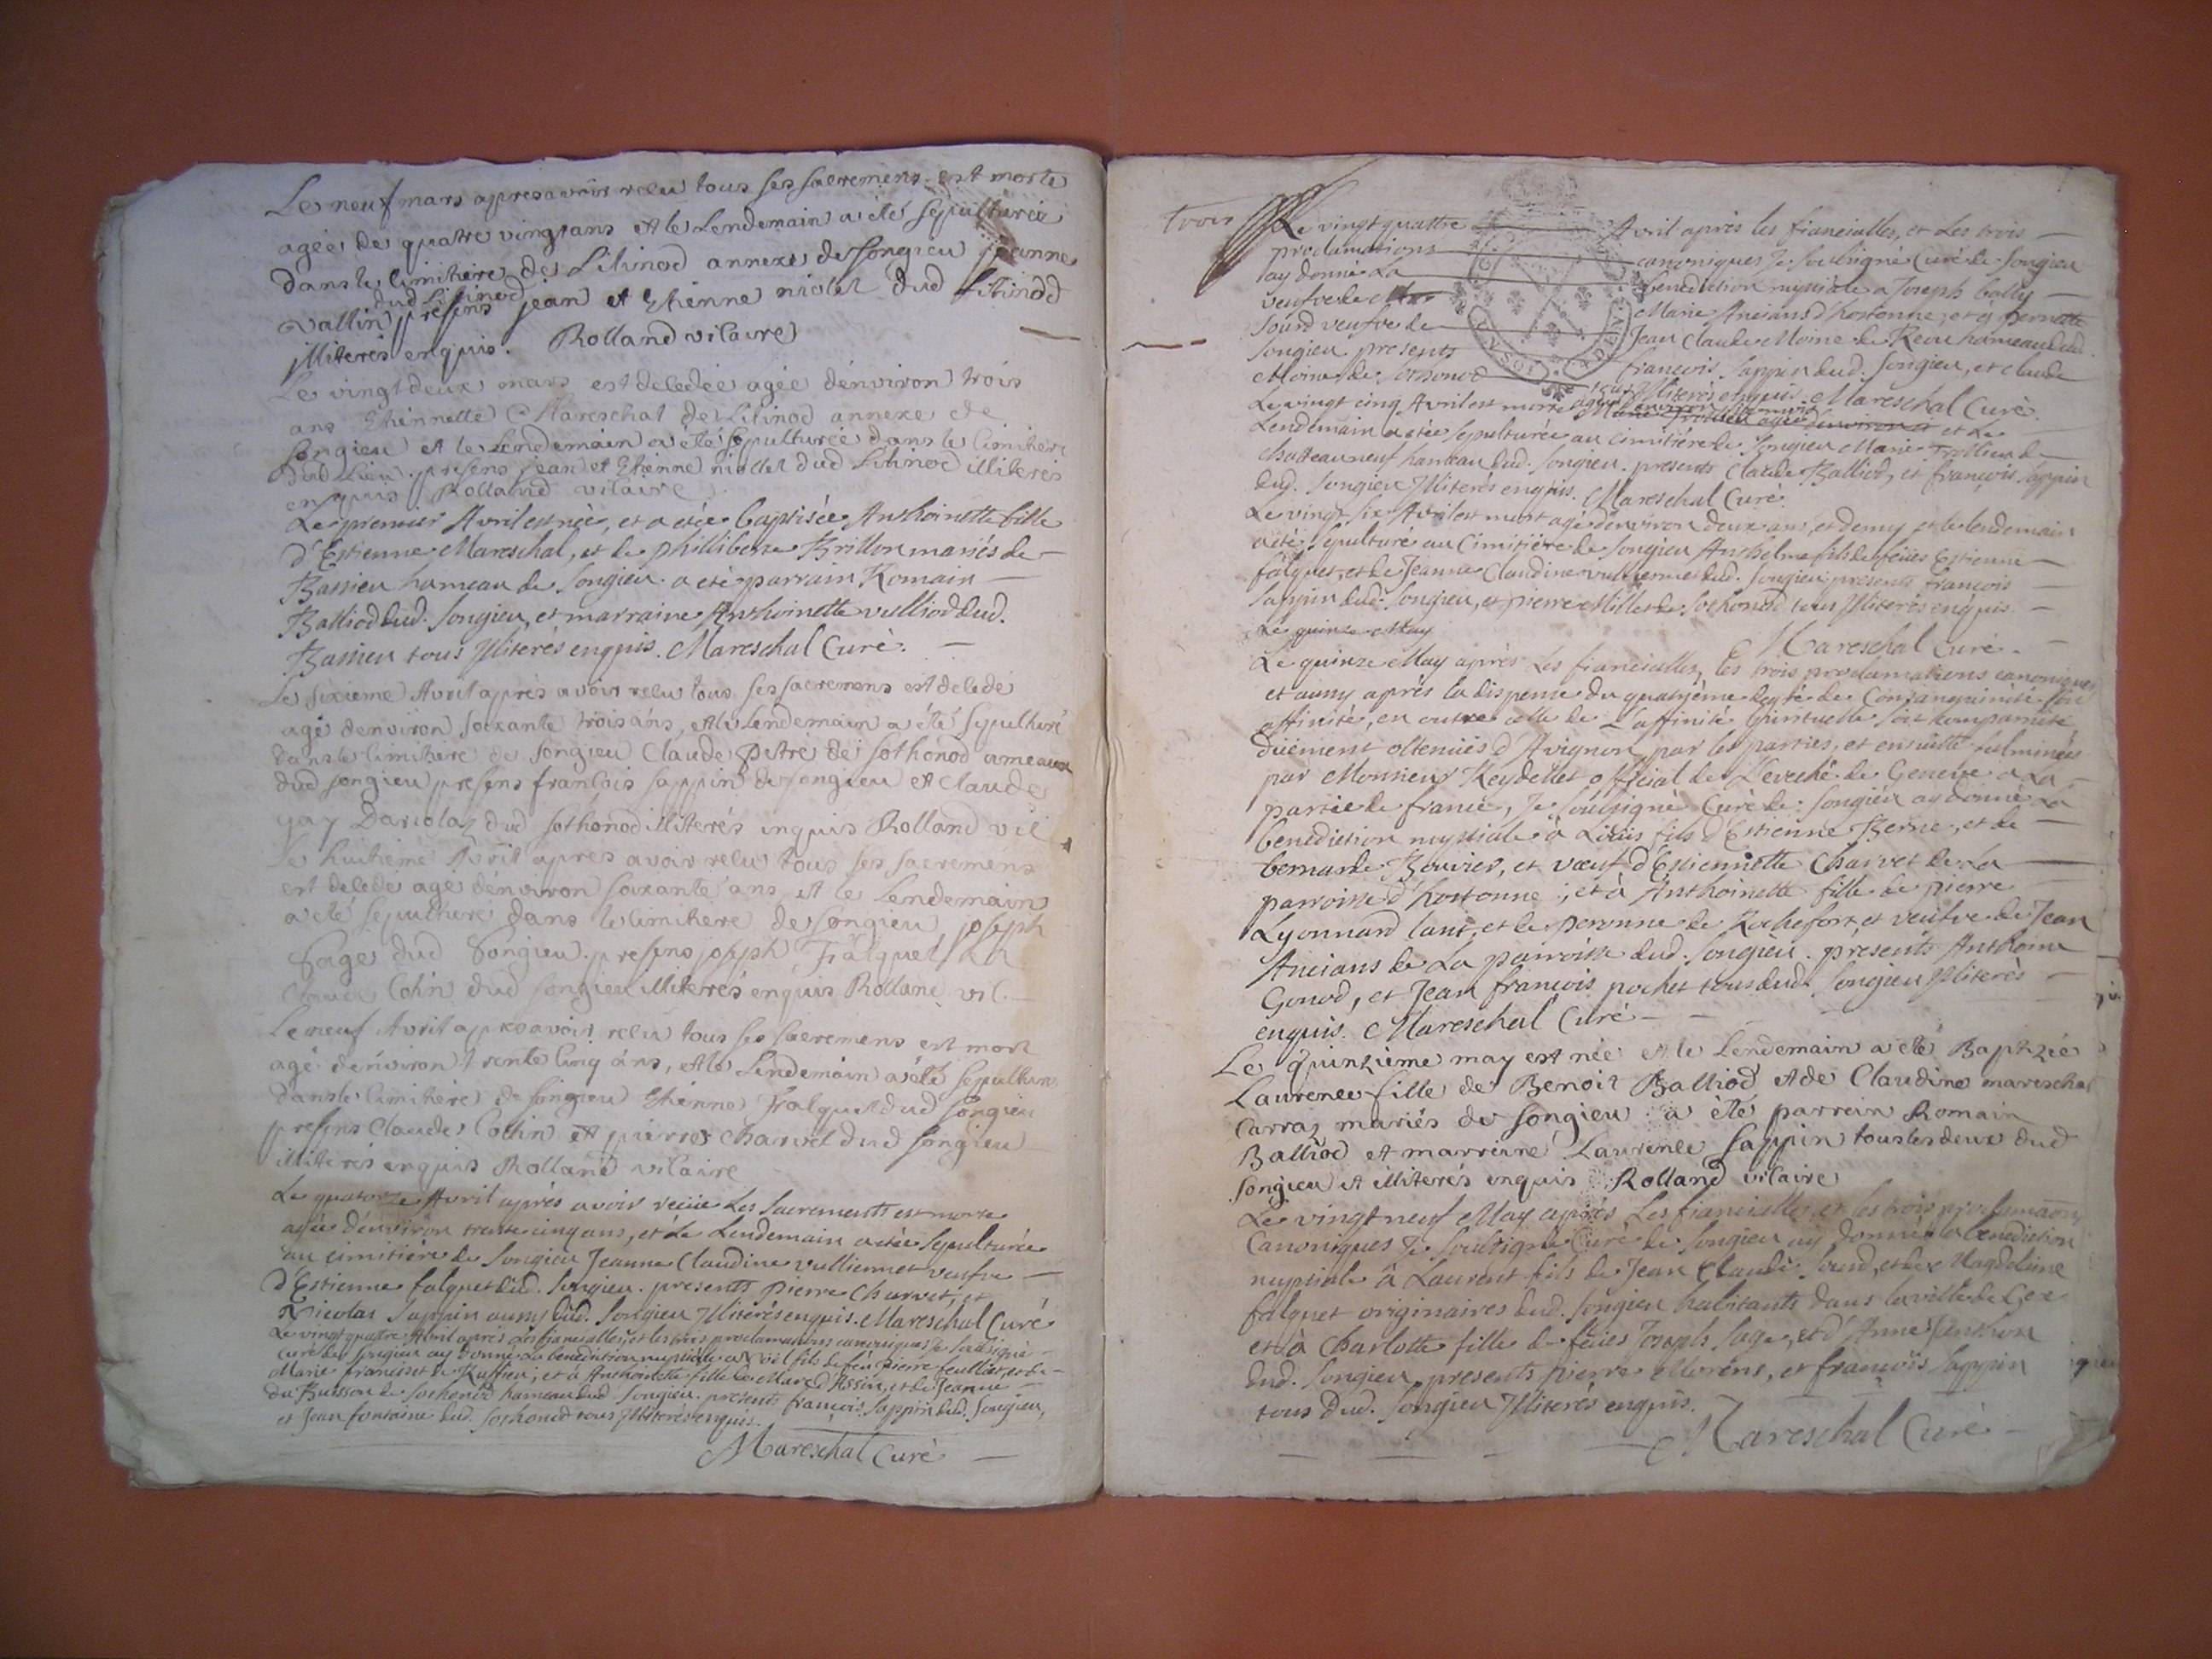 Le neuf mars apres avoir relu tous ses sacremens est morte
agée de quatre vingt ans et le Lendemain a été sepulturée
dans le cimitiere de Lilinod annexe de Songieu jeanne
dud Lilinod
Vallin presens jean et Etienne niollet dud Lilinod
illiterés enquis. Rolland vicaire
Le vingtdeux mars est deledée agée dénviron trois
ans Ethiennette Mareschal de Lilinod annexe de
Songieu et le Lendemain a été sepulturée dans le Cimitiere
dud Lieu. presens jean et Etienne niollet dud Lilinod illiterés
enquis Rolland vicaire
Le premier Avril est née, et a etée baptisée Anthoinette fille
d'Estienne Mareschal, et de philliberte Brillon mariés de
Bassieu hameau de Songieu. a eté parrain Romain
Balliod dud. Songieu, et marraine Anthoinette vulliod dud.
Bassieu tous Illiterés enquis. Mareschal Curé.
Le sixieme Avril aprés avoir relu tous ses sacremens est deledé
agé denviron soixante trois ans, et le Lendemain a été sepulturé
dans le cimitiere de Songieu Claude Petré de Sothonod ameaux
dud Songieu presens francois sappin de Songieu et Claude
gay Dariolaz dud Sothonod illiterés enquis Rolland vic
Le huitieme Avril apres avoir relu tous ses sacremens
est deledé agé dénviron soixante ans et le Lendemain
a eté sepulturé dans le cimitiere de Songieu joseph
Sage dud Songieu. presens joseph Falquet et
Claude Cohin dud Songieu illiterés enquis Rolland vic.
Le neuf Avril apres avoir relu tous ses sacremens est mort
agé dénviron trente cinq ans, et le Lendemain a été sepulturé
dans le cimitiere de Songieu Etienne Falquet dud Songieu
presens Claude Cohin et pierre Charvet dud Songieu
illiterés enquis Rolland vicaire
Le quatorze Avril aprés avoir receue Les Sacrements est morte
agée dénviron trente cinq ans, et Le Lendemain a etée sepulturée
au cimitiére de Songieu Jeanne Claudine vulliermet veufve
d'Estienne falquet dud. Songieu. presents Pierre Charvet, et
Nicolas Sappin aussy dud. Songieu Illiterés enquis. Mareschal Curé
Le vingt quattre Abril aprés Les fiancialles, et les trois proclamations canoniques Je Soussigné
Curé de Songieu ay donné La benediction nuptiale a fils de feu Pierre feullies, et de
Marie francisset de Ruffieu, et à Anthoinette fille de Marc d'Assin, et de Jeanne
du Buisson de Sothonod hameau dud. Songieu. presents francois Sappin dud. Songieu,
et Jean fontaine dud. Sothonod tous Illiterés enquis.
Mareschal Curé
trois
Le vingt quattre Avril aprés les fiancialles, et Les trois
proclamations canoniques Je Soussigné Curé de Songieu
ay donné La benediction nuptiale a Joseph bally
veufve de Marie Ancians d'hostonne, et a pernette
Sourd veufve de Jean Claude Moine de Reou hameau dud.
Songieu presents francois Sappin dud. Songieu, et Claude
Moine de Sothonod tous Illiterés enquis Mareschal Curé.
Le vingt cinq Avril est morte et Le
Lendemain a etée sepulturée au cimitiére de Songieu Marie Trollieu de
Chatteauneuf hameau dud. Songieu. presents Claude Balliod, et francois Sappin
dud. Songieu Illiterés enquis. Mareschal Curé
Le vingt six Avril est mort agé denviron deux ans, et demy et le lendemain
a eté sepulturé au Cimitiére de Songieu Anthelme fils de feües Estienne
falquet, et de Jeanne Claudine vulliermet dud. Songieu presents francois
Sappin dud. Songieu, et pierre Millet de Sothonod tous Illiterés enquis.
Le quinze May
Mareschal Curé.
Le quinze May aprés Les fiancialles, Les trois proclamations canoniques
et aussy aprés la dispense du quatriéme degré de Consanguinité
affinité, en outre celle de L'affinité Spirituelle soit comparnité
düement obtenües d'Avignon par les parties, et ensuitte fulminée
par Monsieur Reydellet official de L'eveché de Geneve a La
partie de france, Je Soussigné Curé de Songieu ay donné La
benediction nuptiale à Loüis fils d'Estienne Berne, et de
bernarde Bouvier, et voeuf d'Estiennette Charvet de La
parroisse d'hostonne ; et à Anthoinette fille de pierre
Lyonnard et de peronne de Rochefort, et veufve de Jean
Ancians de La parroisse dud. Songieu. présents Anthoine
Gonod, et Jean francois pochet tous dud. Songieu Illiterés
enquis. Mareschal Curé
Le quinzieme may est née et le Lendemain a été Baptizée
Laurence fille de Benoit Balliod et de Claudine mareschal
Carraz mariés de Songieu a été parrein Romain
Balliod et marreine Laurence Sappin tous les deux dud
Songieu et illiterés enquis Rolland vicaire
Le vingt neuf May aprés Les fiancialles, et les trois proclamaons
Canoniques Je Soussigné Curé de Songieu ay donné la benediction
nuptiale à Laurent fils de Jean Claude Sourd, et de Magdeleine
falquet originaires dud. Songieu habitants dans la ville de Gex
et à Charlotte fille de feües Joseph Sage, et d'Anne
dud. Songieu. presents Pierre Moréns, et francois Sappin
tous dud. Songieu Illiterés enquis.
Mareschal Curé